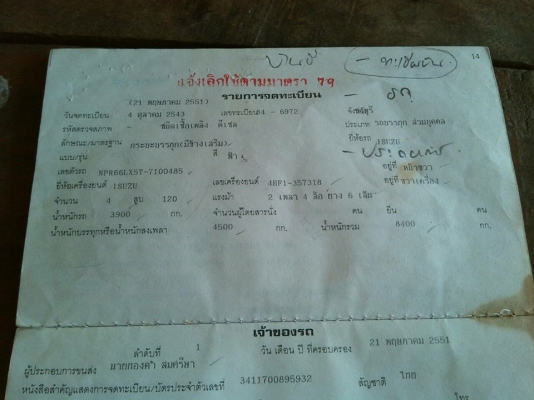 14
บานชี - ทะเบียน
แจ้งเลิกใช้ตามมาตรา 79
(21 พฤษภาคม 2551) รายการจดทะเบียน
วันจดทะเบียน 4 ตุลาคม 2543 เลขทะเบียน 84 - 6972 จังหวัด
รหัสตรวจสภาพ - ชนิดเชื้อเพลิง ดีเซล ประเภท รถบรรทุก ส่วนบุคคล
ลักษณะ/มาตรฐาน กระบะบรรทุก(มีข้างเสริม) ยี่ห้อรถ ISUZU
แบบ/รุ่น สี ฟ้า
เลขตัวรถ NPR66LX5T-7100485 อยู่ที่
ยี่ห้อเครื่องยนต์ ISUZU เลขเครื่องยนต์ 4HF1-357318 อยู่ที่ ขวาเครื่อง
จำนวน 4 สูบ 120 แรงม้า 2 เพลา 4 ล้อ ยาง 6 เส้น
น้ำหนักรถ 3900 กก. จำนวนผู้โดยสารนั่ง - คน ยืน - คน
น้ำหนักบรรทุกหรือน้ำหนักลงเพลา 4500 กก. น้ำหนักรวม 8400 กก.
เจ้าของรถ
ลำดับที่ 1 วัน เดือน ปี ที่ครอบครอง 21 พฤษภาคม 2551
ผู้ประกอบการขนส่ง นายทองคำ
หนังสือสำคัญแสดงการจดทะเบียน/บัตรประจำตัวเลขที่ 3411700895932 สัญชาติ ไทย
โทร